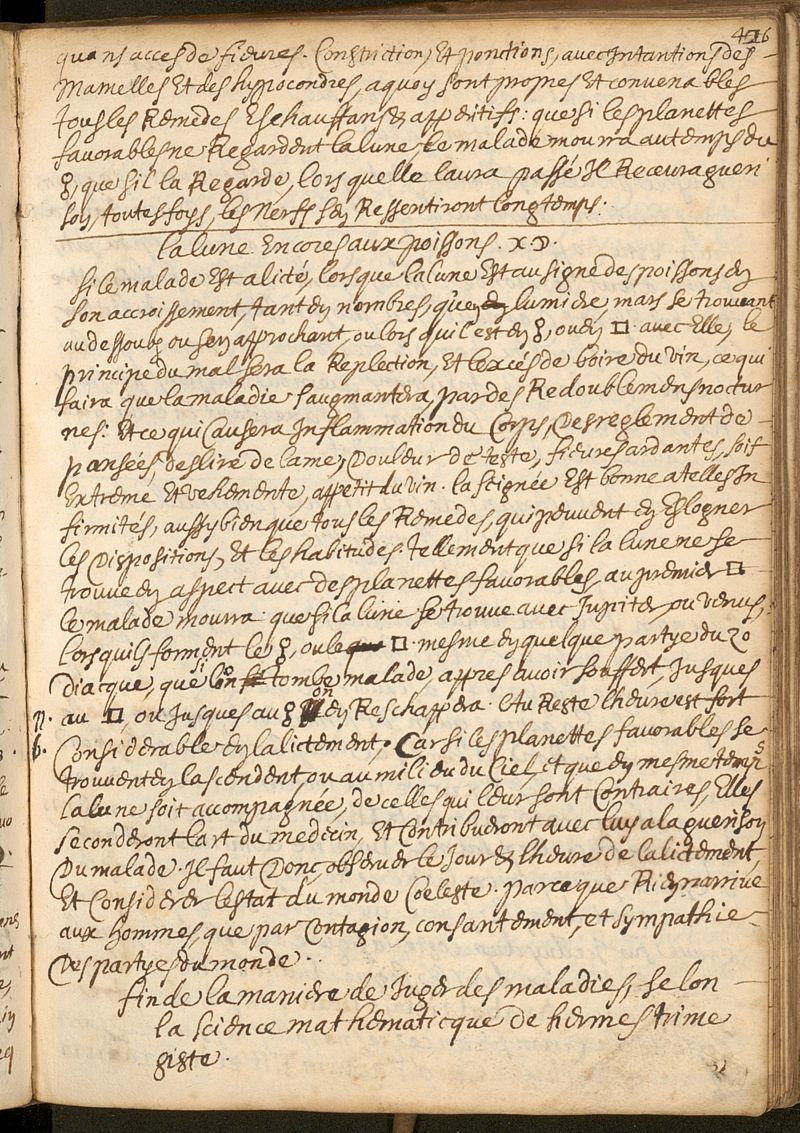 416
quans acces de fieures. Constriction, Et ponctions, avec Intantions des
Mamelles Et des hypocondres, a quoy sont propres Et convenables
tous les Remedes Eschauffans & apperitifs: que si les planettes
favorables ne Regardent la lune le malade mourra au temps du
☍, que sil la Regarde, lors quelle laura passé Il Recevra gueri
son, toutes foys, les nerfs sen Ressentiront longtemps.
la lune Encores aux poissons. X ☽.
si le malade Est alicté, lorsque la lune Est au signe des poissons en
son accroissement, tant en nombres, qu'en lumiere, mars se trouvant
au dessoubz ou sen approchant, ou lors qu'il est en ☍, ou en □ avec Elle, le
principe du mal sera la Replection, Et lexcés de boire du vin, ce qui
faira que la maladie saugmantera par des Redoublemens noctur
nes: Et ce qui Causera Inflammation du Corps, Desreglement de
pansées, deslire de lame, Douleur de teste, fieures ardantes, soif
Extreme Et vehemente, appetit du vin. la seignée Est bonne a telles In
firmités, aussy bien que tous les Remedes, qui peuvent en Eslogner
les Dispositions, Et les habitudes. tellement que si la lune ne se
trouve en aspect avec des planettes favorables au premier □
le malade mourra: que si la lune se trouve avec Jupiter ou venus,
lorsquils forment le ☍, ou le □. mesme en quelque partye du zo
diacque, que si lon tombe malade, appres avoir souffert, Jusques
au □, ou Jusques au ☍ on en Reschappera. Au Reste lheure est fort
Considerable en lalictement. Car si les planettes favorables se
trouvent en lascendent, ou au milieu du Ciel, Et que en mesme temps
la lune soit accompagnée, de celles qui leur sont Contraires, Elles
seconderont lart du medecin, Et Contribueront avec luy a la guerison
Du malade. Il faut Donc observer le Jour & lheure de lalictement,
Et Considerer lestat du monde Coeleste. parce que Rien narrive
aux hommes, que par Contagion, consantement, et sympathie
Des partyes du monde.
fin de la maniere de Juger des maladies, selon
la science mathematicque de hermes trime
giste.